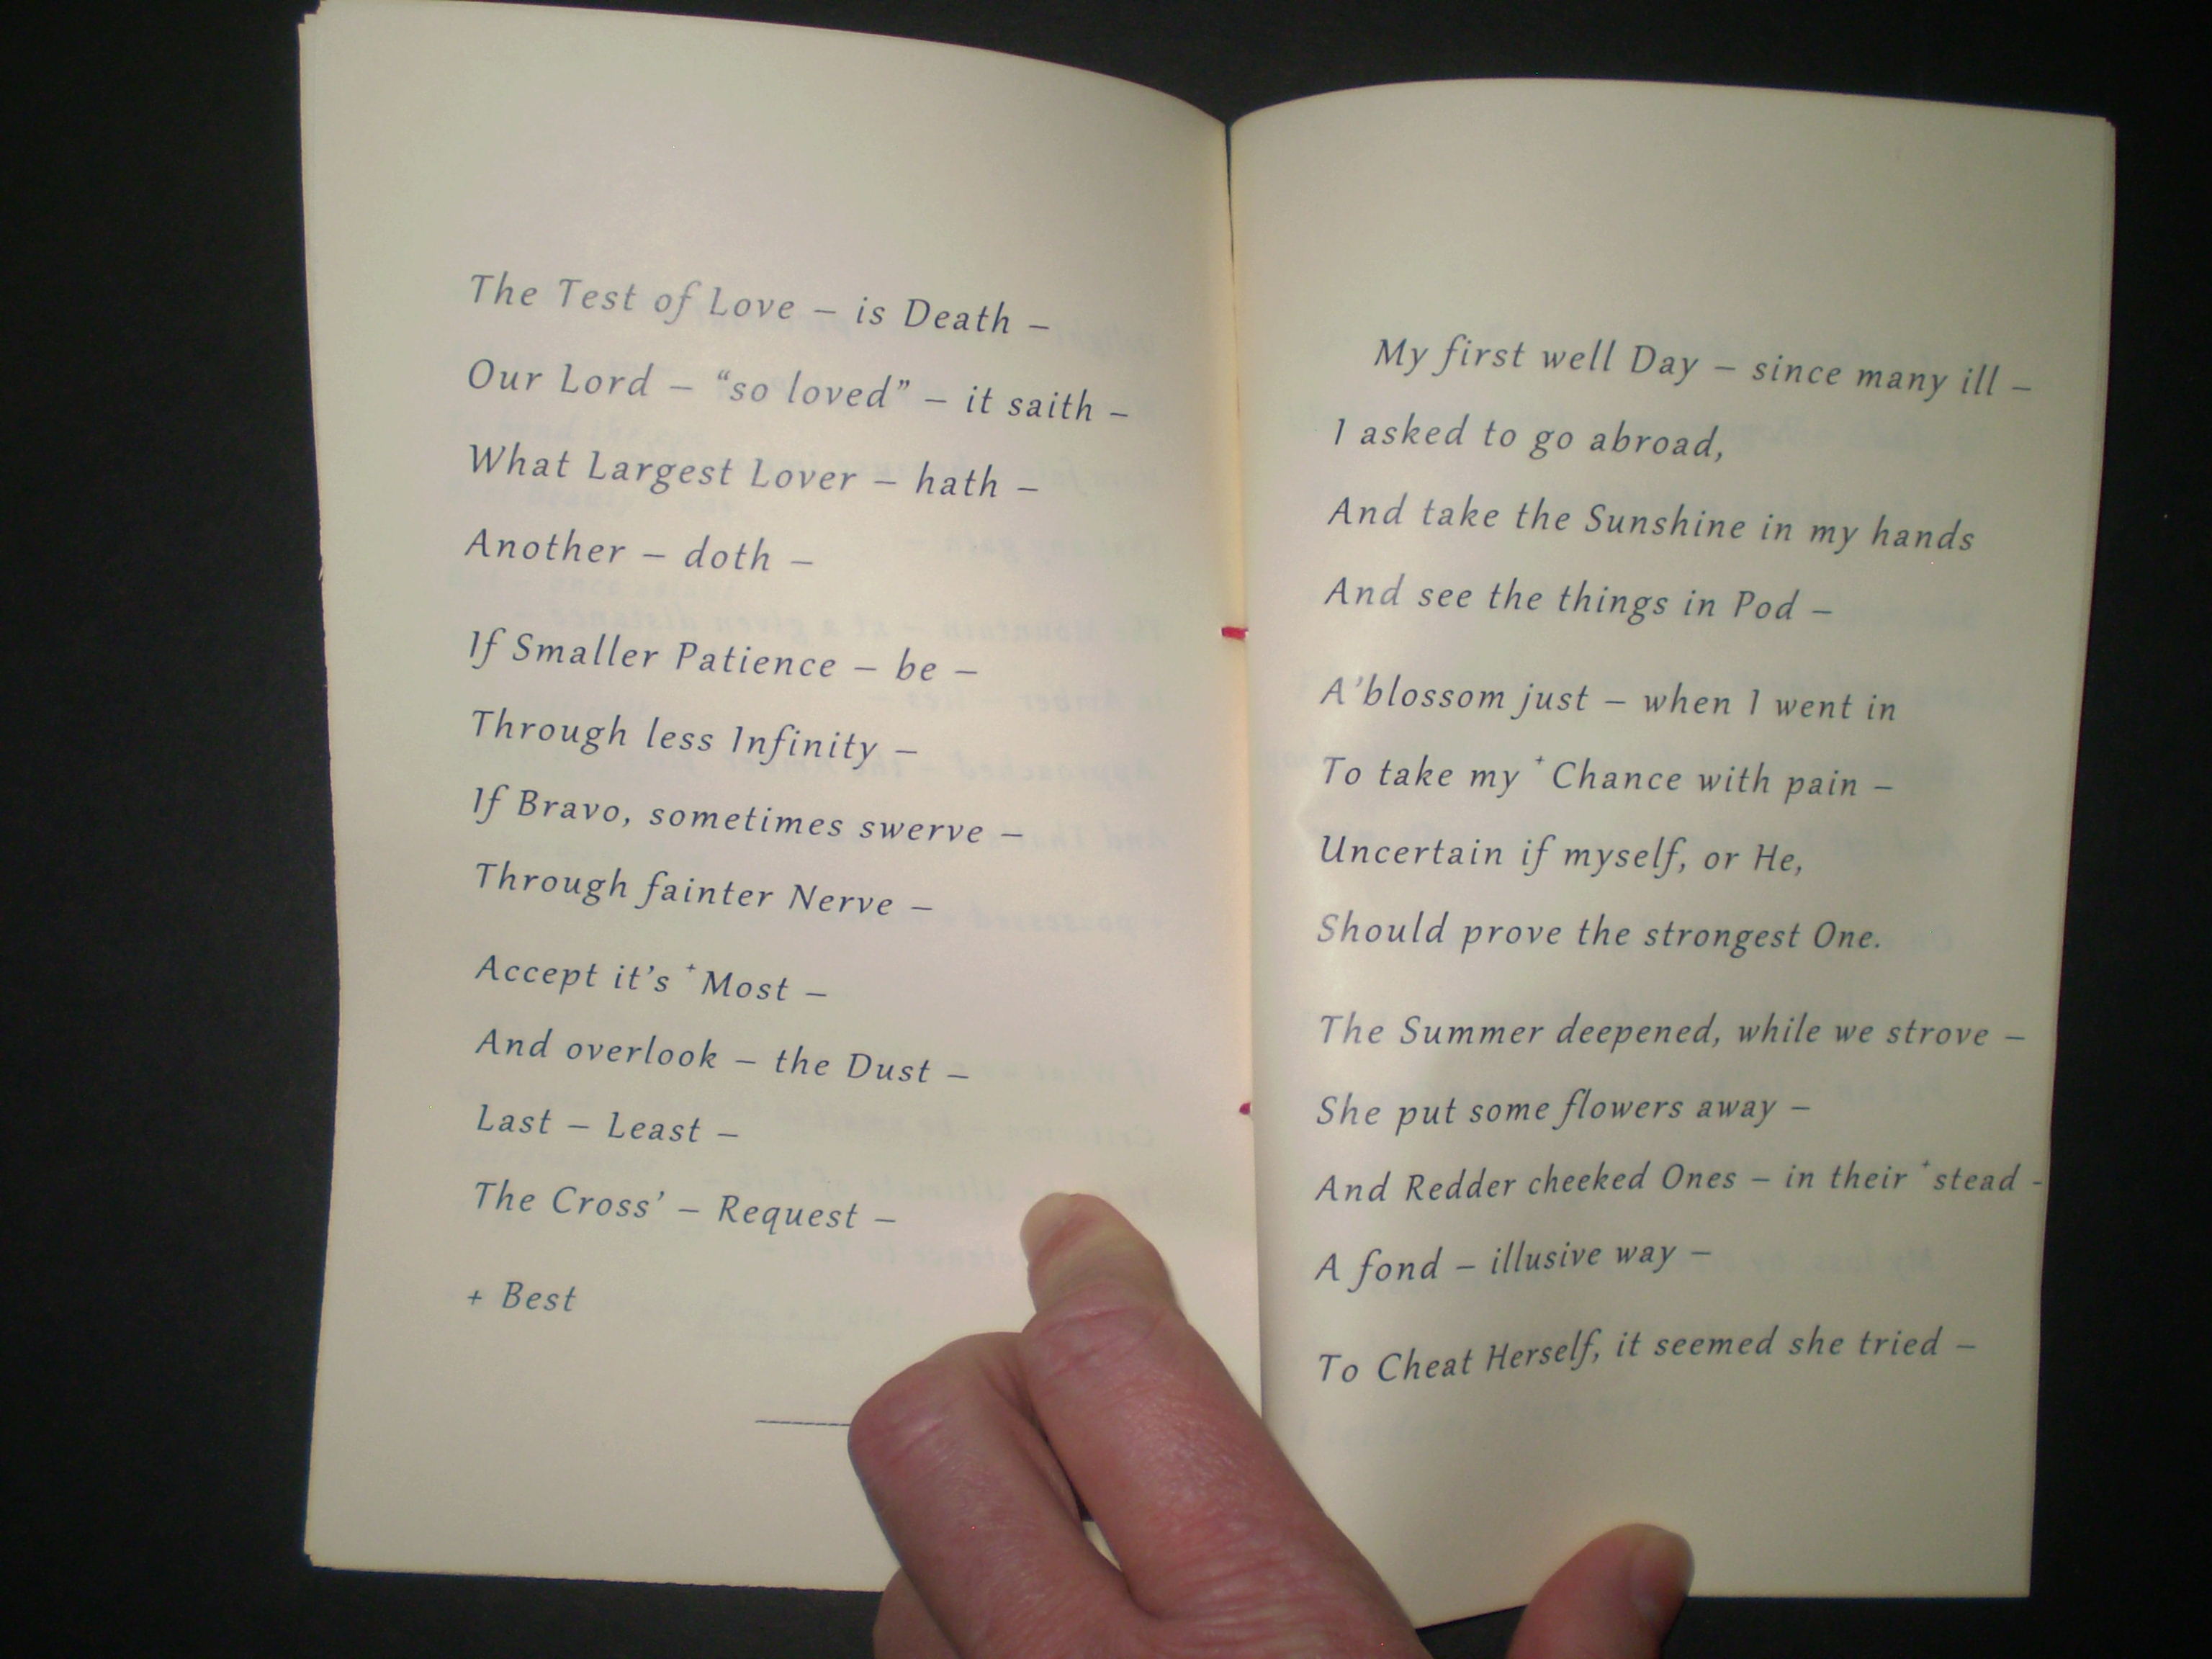 The Test of Love – is Death –
Our Lord – “so loved” – it saith –
What Largest Lover – hath –
Another – doth –
If Smaller Patience – be –
Through less Infinity –
If Bravo, sometimes swerve –
Through fainter Nerve –
Accept it’s +Most –
And overlook – the Dust –
Last – Least –
The Cross’ – Request –
+ Best
My first well Day – since many ill –
I asked to go abroad,
And take the Sunshine in my hands
And see the things in Pod –
A’blossom just – when I went in
To take my +Chance with pain –
Uncertain if myself, or He,
Should prove the strongest One.
The Summer deepened, while we strove –
She put some flowers away –
And Redder cheeked Ones – in their +stead –
A fond – illusive way –
To Cheat Herself, it seemed she tried –